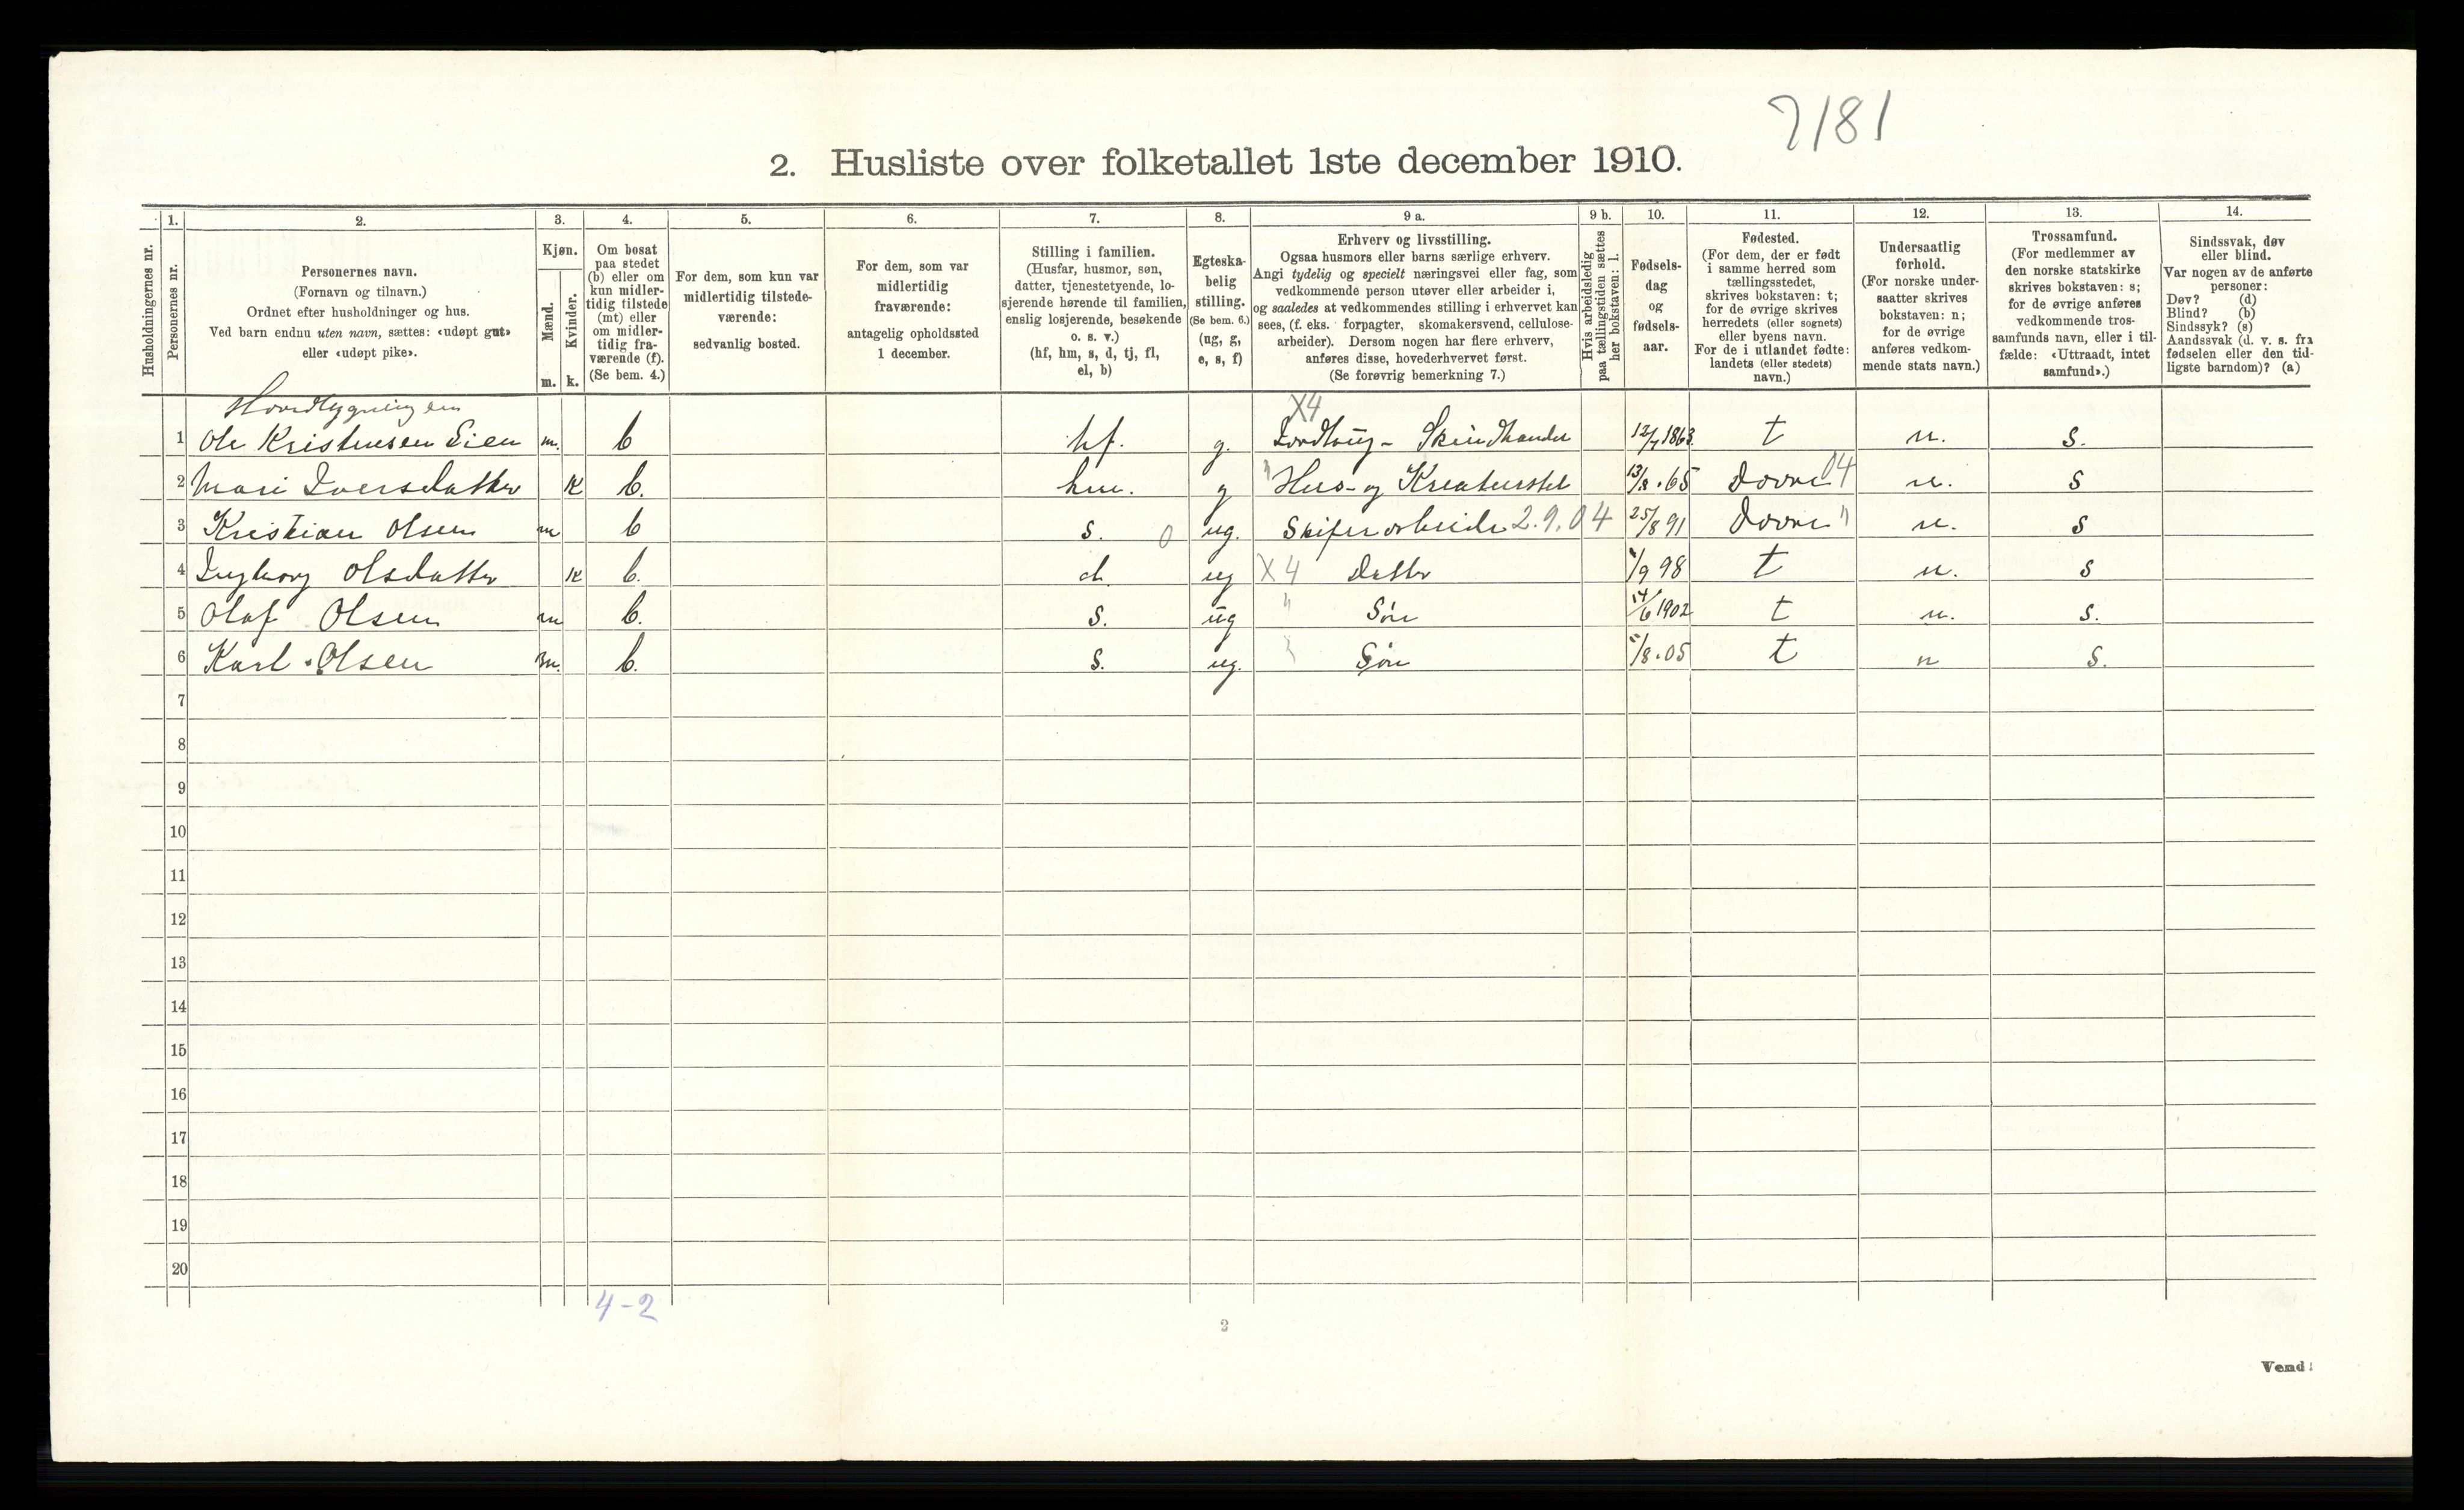 7181
2. Husliste over folketallet 1ste december 1910.
Husholdningernes nr.
1.
Personernes nr.
2.
Personernes navn.
(Fornavn og tilnavn.)
Ordnet efter husholdninger og hus.
Ved barn endnu uten navn, sættes: «udøpt gut»
eller «udøpt pike».
3.
Kjøn.
Mænd.
Kvinder.
m. k.
4.
Om bosat
paa stedet
(b) eller om
kun midler-
tidig tilstede
(mt) eller
om midler-
tidig fra-
værende (f).
(Se bem. 4.)
5.
For dem, som kun var
midlertidig tilstede-
værende:
sedvanlig bosted.
6.
For dem, som var
midlertidig
fraværende:
antagelig opholdssted
1 december.
7.
Stilling i familien.
(Husfar, husmor, søn,
datter, tjenestetyende, lo-
sjerende hørende til familien,
enslig losjerende, besøkende
o. s. v.)
(hf, hm, s, d, tj, fl,
el, b)
8.
Egteska-
belig
stilling.
(Se bem. 6.)
(ug, g,
e, s, f)
9 a.
Erhverv og livsstilling.
Ogsaa husmors eller barns særlige erhverv.
Angi tydelig og specielt næringsvei eller fag, som
vedkommende person utøver eller arbeider i,
og saaledes at vedkommendes stilling i erhvervet kan
sees, (f. eks. forpagter, skomakersvend, cellulose-
arbeider). Dersom nogen har flere erhverv,
anføres disse, hovederhvervet først.
(Se forøvrig bemerkning 7.)
9 b.
Hvis arbeidsledig
paa tællingstiden sættes
her bokstaven: l.
10.
Fødsels-
dag
og
fødsels-
aar.
11.
Fødested.
(For dem, der er født
i samme herred som
tællingsstedet,
skrives bokstaven: t;
for de øvrige skrives
herredets (eller sognets)
eller byens navn.
For de i utlandet fødte:
landets (eller stedets)
navn.)
12.
Undersaatlig
forhold.
(For norske under-
saatter skrives
bokstaven: n;
for de øvrige
anføres vedkom-
mende stats navn.)
13.
Trossamfund.
(For medlemmer av
den norske statskirke
skrives bokstaven: s;
for de øvrige anføres
vedkommende tros-
samfunds navn, eller i til-
fælde: «Uttraadt, intet
samfund».)
14.
Sindssvak, døv
eller blind.
Var nogen av de anførte
personer:
Døv? (d)
Blind? (b)
Sindssyk? (s)
Aandssvak (d. v. s. fra
fødselen eller den tid-
ligste barndom)? (a)
Hovedbygningen
X4
1 Ole Kristensen Lien m. b hf. g. Jordbrug- Skindhandel 12/7 1863. t n. s.
2 Mari Iversdatter K b. hm. g " Hus- og Kreaturstel 13/8 . 65 Dovre 04 n. s
3 Kristian Olsen m b s. 0 ug. Skiferarbeider 2.9.04 25/8 91 Dovre " n. s
4 Ingborg Olsdatter K b. d. ug X4 Datter /9 98 t n. s
5 Olaf Olsen m b. s. ug " Søn 14/6 1902 t n. s.
6 Karl Olsen m. b. s. ug. " Søn /8 . 05 t n s.
7
8
9
10
11
12
13
14
15
16
17
18
19
20
4-2
2
Vend!